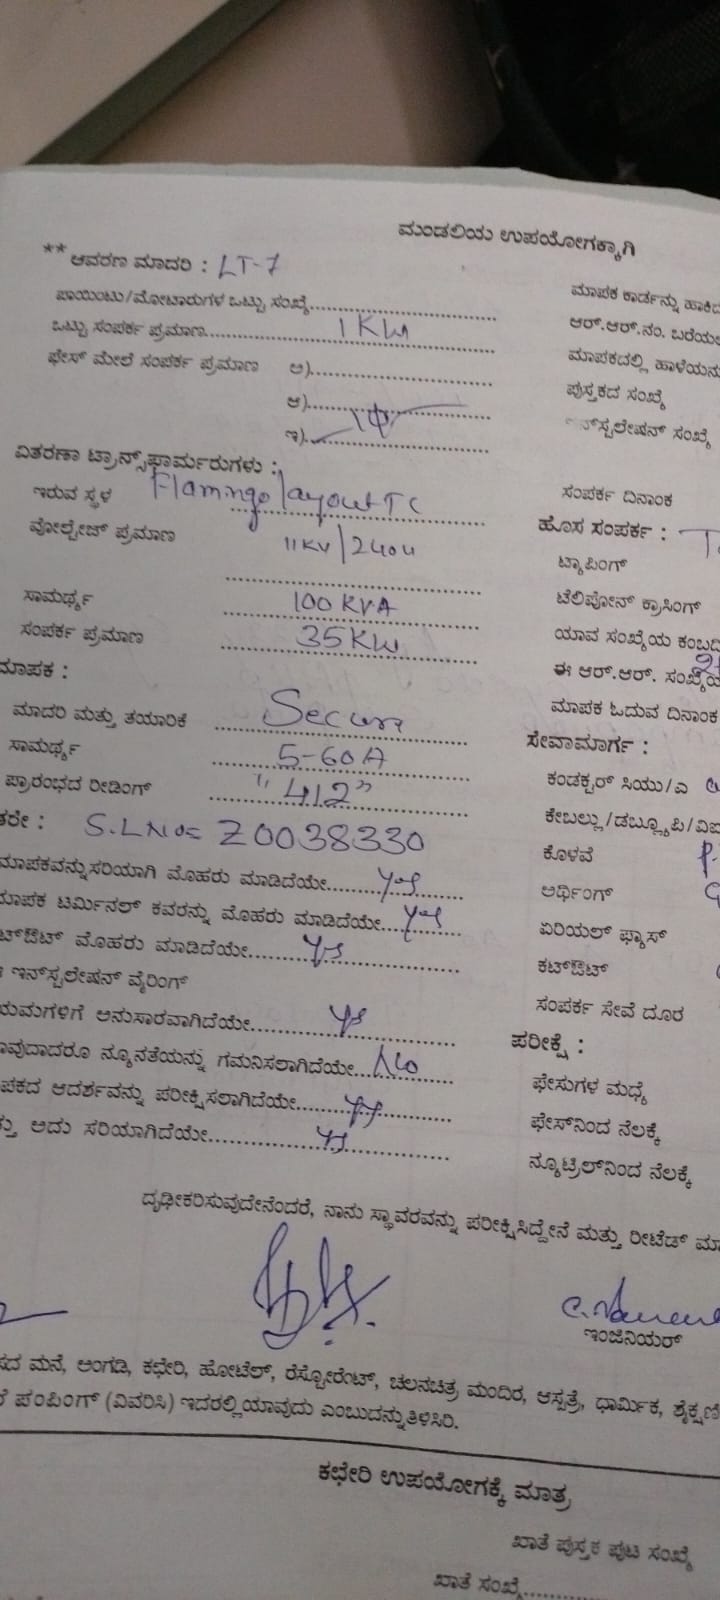 ಮಂಡಲಿಯ ಉಪಯೋಗಕ್ಕಾಗಿ
** ಆವರಣ ಮಾದರಿ : LT-7
ಪಾಯಿಂಟು/ಮೋಟಾರುಗಳ ಒಟ್ಟು ಸಂಖ್ಯೆ
ಒಟ್ಟು ಸಂಪರ್ಕ ಪ್ರಮಾಣ 1 KW
ಫೇಸ್ ಮೇಲೆ ಸಂಪರ್ಕ ಪ್ರಮಾಣ ಅ)
ಆ)
ಇ) 1ф
ವಿತರಣಾ ಟ್ರಾನ್ಸ್‌ಫಾರ್ಮರುಗಳು :
ಇರುವ ಸ್ಥಳ Flamingo layout TC
ವೋಲ್ಟೇಜ್ ಪ್ರಮಾಣ 11KV/240V
ಸಾಮರ್ಥ್ಯ 100 KVA
ಸಂಪರ್ಕ ಪ್ರಮಾಣ 35KW
ಮಾಪಕ :
ಮಾದರಿ ಮತ್ತು ತಯಾರಿಕೆ Secure
ಸಾಮರ್ಥ್ಯ 5-60A
ಪ್ರಾರಂಭದ ರೀಡಿಂಗ್ "412"
ತರೇ : S.LNo= Z0038330
ಮಾಪಕವನ್ನು ಸರಿಯಾಗಿ ಮೊಹರು ಮಾಡಿದೆಯೇ yes
ಮಾಪಕ ಟರ್ಮಿನಲ್ ಕವರನ್ನು ಮೊಹರು ಮಾಡಿದೆಯೇ yes
ಟ್‌ಔಟ್ ಮೊಹರು ಮಾಡಿದೆಯೇ yes
ಇನ್‌ಸ್ಟಲೇಷನ್ ವೈರಿಂಗ್
ಯಮಗಳಿಗೆ ಅನುಸಾರವಾಗಿದೆಯೇ yes
ವುದಾದರೂ ನ್ಯೂನತೆಯನ್ನು ಗಮನಿಸಲಾಗಿದೆಯೇ No
ಪಕದ ಆದರ್ಶವನ್ನು ಪರೀಕ್ಷಿಸಲಾಗಿದೆಯೇ yes
ತ್ತು ಅದು ಸರಿಯಾಗಿದೆಯೇ yes
ಮಾಪಕ ಕಾರ್ಡನ್ನು ಹಾಕಿದ
ಆರ್.ಆರ್.ನಂ. ಬರೆಯಲ
ಮಾಪಕದಲ್ಲಿ ಹಾಳೆಯನು
ಪುಸ್ತಕದ ಸಂಖ್ಯೆ
ಇನ್‌ಸ್ಟಲೇಷನ್ ಸಂಖ್ಯೆ
ಸಂಪರ್ಕ ದಿನಾಂಕ
ಹೊಸ ಸಂಪರ್ಕ :
ಟ್ಯಾಪಿಂಗ್
ಟೆಲಿಪೋನ್ ಕ್ರಾಸಿಂಗ್
ಯಾವ ಸಂಖ್ಯೆಯ ಕಂಬದಿ
ಈ ಆರ್.ಆರ್. ಸಂಖ್ಯೆಯ
ಮಾಪಕ ಓದುವ ದಿನಾಂಕ
ಸೇವಾಮಾರ್ಗ :
ಕಂಡಕ್ಟರ್ ಸಿಯು/ಎ
ಕೇಬಲ್ಲು/ಡಬ್ಲ್ಯೂಪಿ/ವಿಐ
ಕೊಳವೆ P.
ಅರ್ಥಿಂಗ್ G
ಏರಿಯಲ್ ಫ್ಯಾಸ್
ಕಟ್‌ಔಟ್
ಸಂಪರ್ಕ ಸೇವೆ ದೂರ
ಪರೀಕ್ಷೆ :
ಫೇಸುಗಳ ಮಧ್ಯೆ
ಫೇಸ್‌ನಿಂದ ನೆಲಕ್ಕೆ
ನ್ಯೂಟ್ರಲ್‌ನಿಂದ ನೆಲಕ್ಕೆ
ದೃಢೀಕರಿಸುವುದೇನೆಂದರೆ, ನಾನು ಸ್ಥಾವರವನ್ನು ಪರೀಕ್ಷಿಸಿದ್ದೇನೆ ಮತ್ತು ರೀಟೆಡ್ ಮಾ
ಇಂಜಿನಿಯರ್
ಸದ ಮನೆ, ಅಂಗಡಿ, ಕಛೇರಿ, ಹೋಟೆಲ್, ರೆಸ್ಟೋರೆಂಟ್, ಚಲನಚಿತ್ರ ಮಂದಿರ, ಆಸ್ಪತ್ರೆ, ಧಾರ್ಮಿಕ, ಶೈಕ್ಷಣಿ
ಪಂಪಿಂಗ್ (ವಿವರಿಸಿ) ಇದರಲ್ಲಿ ಯಾವುದು ಎಂಬುದನ್ನು ತಿಳಿಸಿರಿ.
ಕಛೇರಿ ಉಪಯೋಗಕ್ಕೆ ಮಾತ್ರ
ಖಾತೆ ಪುಸ್ತಕ ಪುಟ ಸಂಖ್ಯೆ
ಖಾತೆ ಸಂಖ್ಯೆ